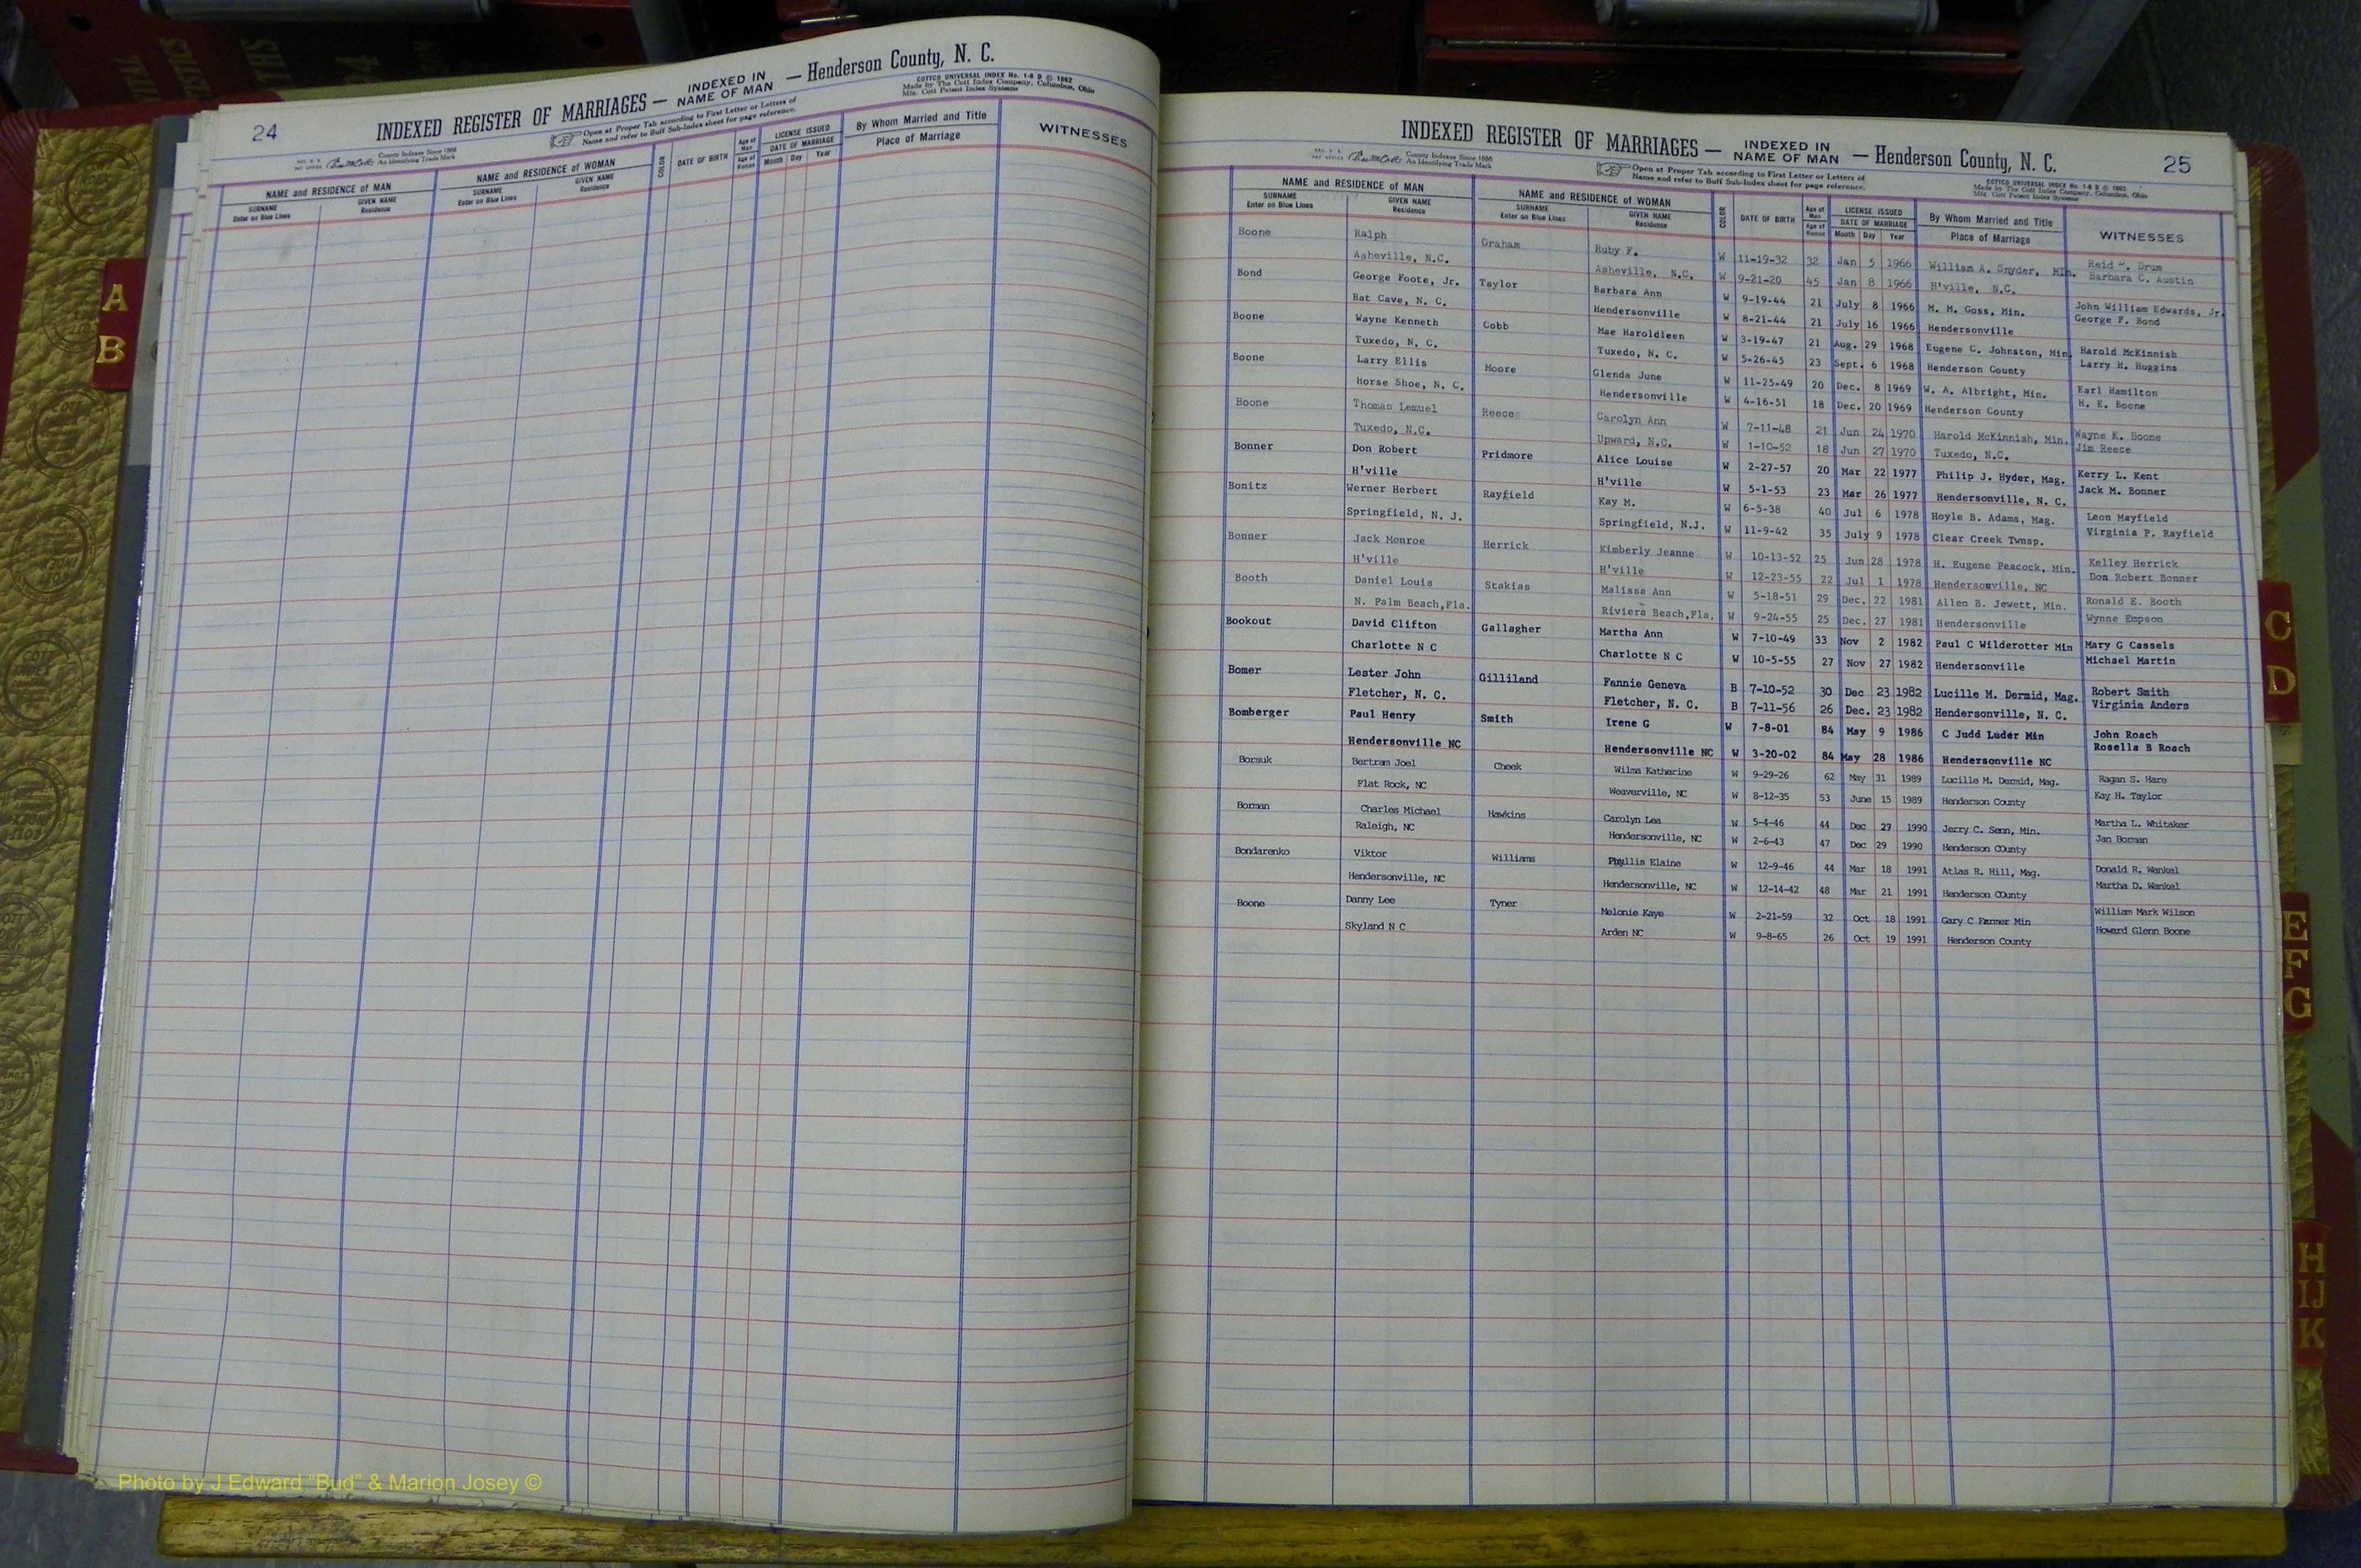 VITAL
STATISTICS
24
INDEXED REGISTER OF MARRIAGES — INDEXED IN NAME OF MAN — Henderson County, N. C.
COTTCO UNIVERSAL INDEX No. 1-8 D © 1962
Made by The Cott Index Company, Columbus, Ohio
Mfg. Cott Patent Index Systems
Open at Proper Tab according to First Letter or Letters of
Name and refer to Buff Sub-Index sheet for page reference.
County Indexes Since 1888
An Identifying Trade Mark
NAME and RESIDENCE of MAN NAME and RESIDENCE of WOMAN COLOR DATE OF BIRTH Age of Man Age of Woman LICENSE ISSUED DATE OF MARRIAGE By Whom Married and Title Place of Marriage WITNESSES
SURNAME Enter on Blue Lines GIVEN NAME Residence SURNAME Enter on Blue Lines GIVEN NAME Residence Month Day Year
A
B
INDEXED REGISTER OF MARRIAGES — INDEXED IN NAME OF MAN — Henderson County, N. C.
25
County Indexes Since 1888
An Identifying Trade Mark
Open at Proper Tab according to First Letter or Letters of
Name and refer to Buff Sub-Index sheet for page reference.
COTTCO UNIVERSAL INDEX No. 1-8 D © 1962
Made by The Cott Index Company, Columbus, Ohio
Mfg. Cott Patent Index Systems
NAME and RESIDENCE of MAN NAME and RESIDENCE of WOMAN COLOR DATE OF BIRTH Age of Man Age of Woman LICENSE ISSUED DATE OF MARRIAGE By Whom Married and Title Place of Marriage WITNESSES
SURNAME Enter on Blue Lines GIVEN NAME Residence SURNAME Enter on Blue Lines GIVEN NAME Residence Month Day Year
Boone Ralph Graham Ruby F. W 11-19-32 32 Jan 5 1966 William A. Snyder, Min. Reid Drum
Asheville, N.C. Asheville, N.C. W 9-21-20 45 Jan 8 1966 H'ville, N.C. Barbara C. Austin
Bond George Foote, Jr. Taylor Barbara Ann W 9-19-44 21 July 8 1966 M. M. Goss, Min. John William Edwards, Jr.
Bat Cave, N. C. Hendersonville W 8-21-44 21 July 16 1966 Hendersonville George F. Bond
Boone Wayne Kenneth Cobb Mae Haroldleen W 3-19-47 21 Aug. 29 1968 Eugene C. Johnston, Min. Harold McKinnish
Tuxedo, N. C. Tuxedo, N. C. W 5-26-45 23 Sept. 6 1968 Henderson County Larry H. Huggins
Boone Larry Ellis Moore Glenda June W 11-25-49 20 Dec. 8 1969 W. A. Albright, Min. Earl Hamilton
Horse Shoe, N. C. Hendersonville W 4-16-51 18 Dec. 20 1969 Henderson County H. E. Boone
Boone Thomas Lemuel Reece Carolyn Ann W 7-11-48 21 Jun 24 1970 Harold McKinnish, Min. Wayne K. Boone
Tuxedo, N.C. Upward, N.C. W 1-10-52 18 Jun 27 1970 Tuxedo, N.C. Jim Reece
Bonner Don Robert Pridmore Alice Louise W 2-27-57 20 Mar 22 1977 Philip J. Hyder, Mag. Kerry L. Kent
H'ville H'ville W 5-1-53 23 Mar 26 1977 Hendersonville, N. C. Jack M. Bonner
Bonitz Werner Herbert Rayfield Kay M. W 6-5-38 40 Jul 6 1978 Hoyle B. Adams, Mag. Leon Mayfield
Springfield, N. J. Springfield, N.J. W 11-9-42 35 July 9 1978 Clear Creek Twnsp. Virginia P. Rayfield
Bonner Jack Monroe Herrick Kimberly Jeanne W 10-13-52 25 Jun 28 1978 H. Eugene Peacock, Min. Kelley Herrick
H'ville H'ville W 12-23-55 22 Jul 1 1978 Hendersonville, NC Don Robert Bonner
Booth Daniel Louis Stakias Malissa Ann W 5-18-51 29 Dec. 22 1981 Allen B. Jewett, Min. Ronald E. Booth
N. Palm Beach,Fla. Riviera Beach,Fla. W 9-24-55 25 Dec. 27 1981 Hendersonville Wynne Empson
Bookout David Clifton Gallagher Martha Ann W 7-10-49 33 Nov 2 1982 Paul C Wilderotter Min Mary G Cassels
Charlotte N C Charlotte N C W 10-5-55 27 Nov 27 1982 Hendersonville Michael Martin
Bomer Lester John Gilliland Fannie Geneva B 7-10-52 30 Dec 23 1982 Lucille M. Dermid, Mag. Robert Smith
Fletcher, N. C. Fletcher, N. C. B 7-11-56 26 Dec. 23 1982 Hendersonville, N. C. Virginia Anders
Bomberger Paul Henry Smith Irene G W 7-8-01 84 May 9 1986 C Judd Luder Min John Roach
Hendersonville NC Hendersonville NC W 3-20-02 84 May 28 1986 Hendersonville NC Rosella B Roach
Borsuk Bertram Joel Cheek Wilma Katherine W 9-29-26 62 May 31 1989 Lucille M. Dermid, Mag. Ragan S. Hare
Flat Rock, NC Weaverville, NC W 8-12-35 53 June 15 1989 Henderson County Kay H. Taylor
Borman Charles Michael Hawkins Carolyn Lea W 5-4-46 44 Dec 27 1990 Jerry C. Senn, Min. Martha L. Whitaker
Raleigh, NC Hendersonville, NC W 2-6-43 47 Dec 29 1990 Henderson COunty Jan Borman
Bondarenko Viktor Williams Phyllis Elaine W 12-9-46 44 Mar 18 1991 Atlas R. Hill, Mag. Donald R. Wankel
Hendersonville, NC Hendersonville, NC W 12-14-42 48 Mar 21 1991 Henderson COunty Martha D. Wankel
Boone Danny Lee Tyner Melonie Kaye W 2-21-59 32 Oct 18 1991 Gary C Farmer Min William Mark Wilson
Skyland N C Arden NC W 9-8-65 26 Oct 19 1991 Henderson County Howard Glenn Boone
C
D
E
F
G
H
IJ
K
Photo by J Edward "Bud" & Marion Josey ©